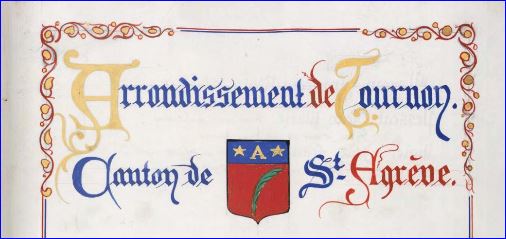 Arrondissement de Tournon.
Canton de A St. Agrève.